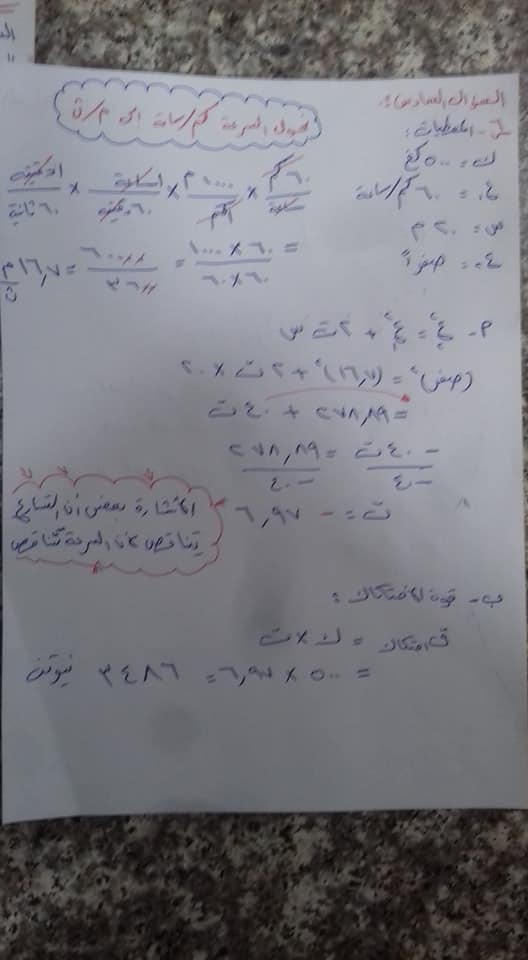 السؤال السادس:
ج- المعطيات:
ك = ٥٠٠ كغ
ع. = ٦٠ كم/ساعة
س = ٢٠ م
ع = صفراً
نحول السرعة كم/ساعة الى م/ث
٦٠ كم/ساعة × ١٠٠٠ م/١كم × ١ساعة/٦٠ دقيقة × ١دقيقة/٦٠ ثانية
= ٦٠ × ١٠٠٠ / ٦٠ × ٦٠ = ٦٠٠٠٠ / ٣٦٠٠ = ١٦,٧ م/ث
٢ع = ٢ع + ٢ ت س
(صفر)٢ = (١٦,٧)٢ + ٢ ت × ٢٠
= ٢٧٨,٨٩ + ٤٠ ت
-٤٠ ت / -٤٠ = ٢٧٨,٨٩ / -٤٠
ت = - ٦,٩٧
الاشارة بعض أن التسارع
يتناقص لأن السرعة تتناقص
ب- قوة الاحتكاك:
ق احتكاك = ك × ت
= ٥٠٠ × ٦,٩٧ = ٣٤٨٦ نيوتن